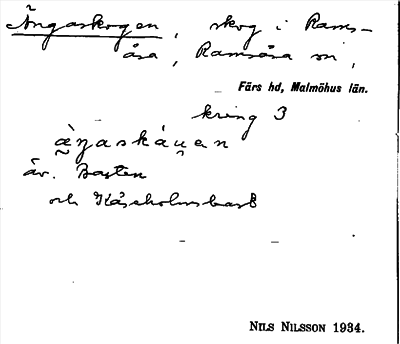 Ängaskogen, skog i Rams-
åsa, Ramsåsa sn,
Färs hd, Malmöhus län.
kring 3
àŋaskáu̯an
äv. Basten
och
NILS NILSSON 1934.